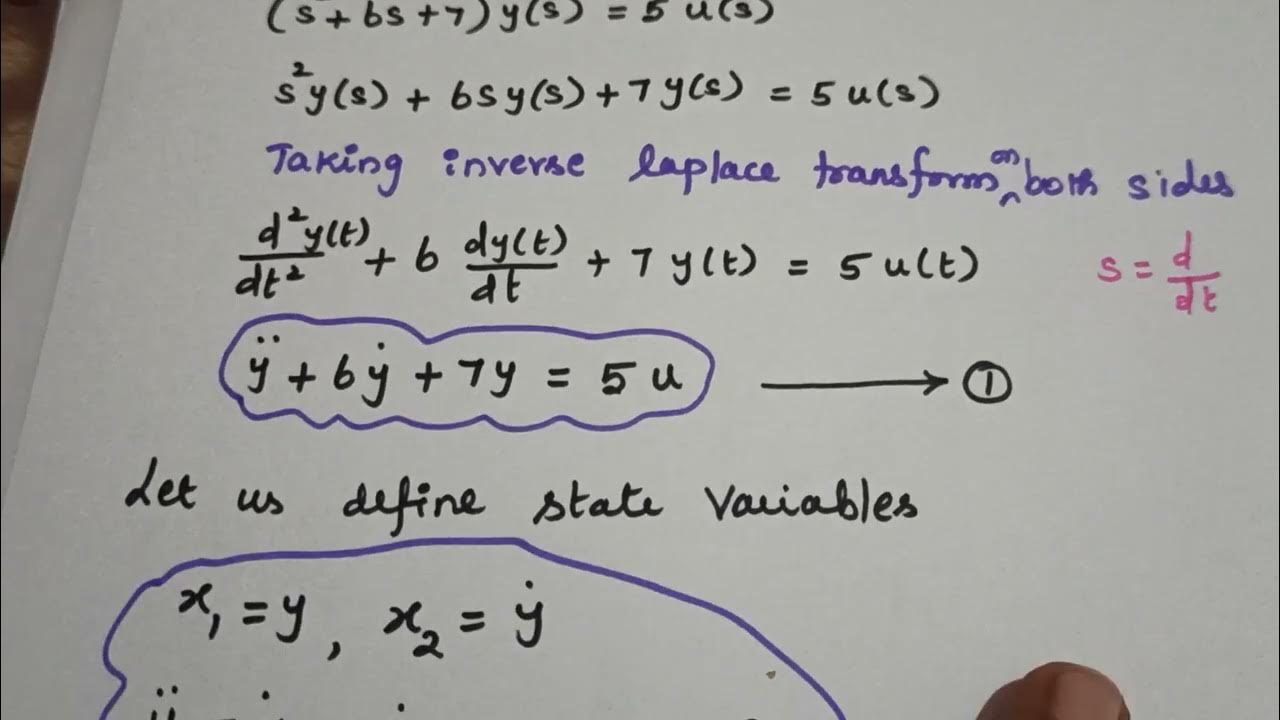 (s + 6s + 7) y(s) = 5 u(s)
s²y(s) + 6sy(s) + 7y(s) = 5u(s)
Taking inverse laplace transform on both sides
d²y(t)/dt² + 6 dy(t)/dt + 7y(t) = 5u(t) s = d/dt
ÿ + 6ẏ + 7y = 5u ⟶ ①
Let us define state variables
x₁ = y, x₂ = ẏ